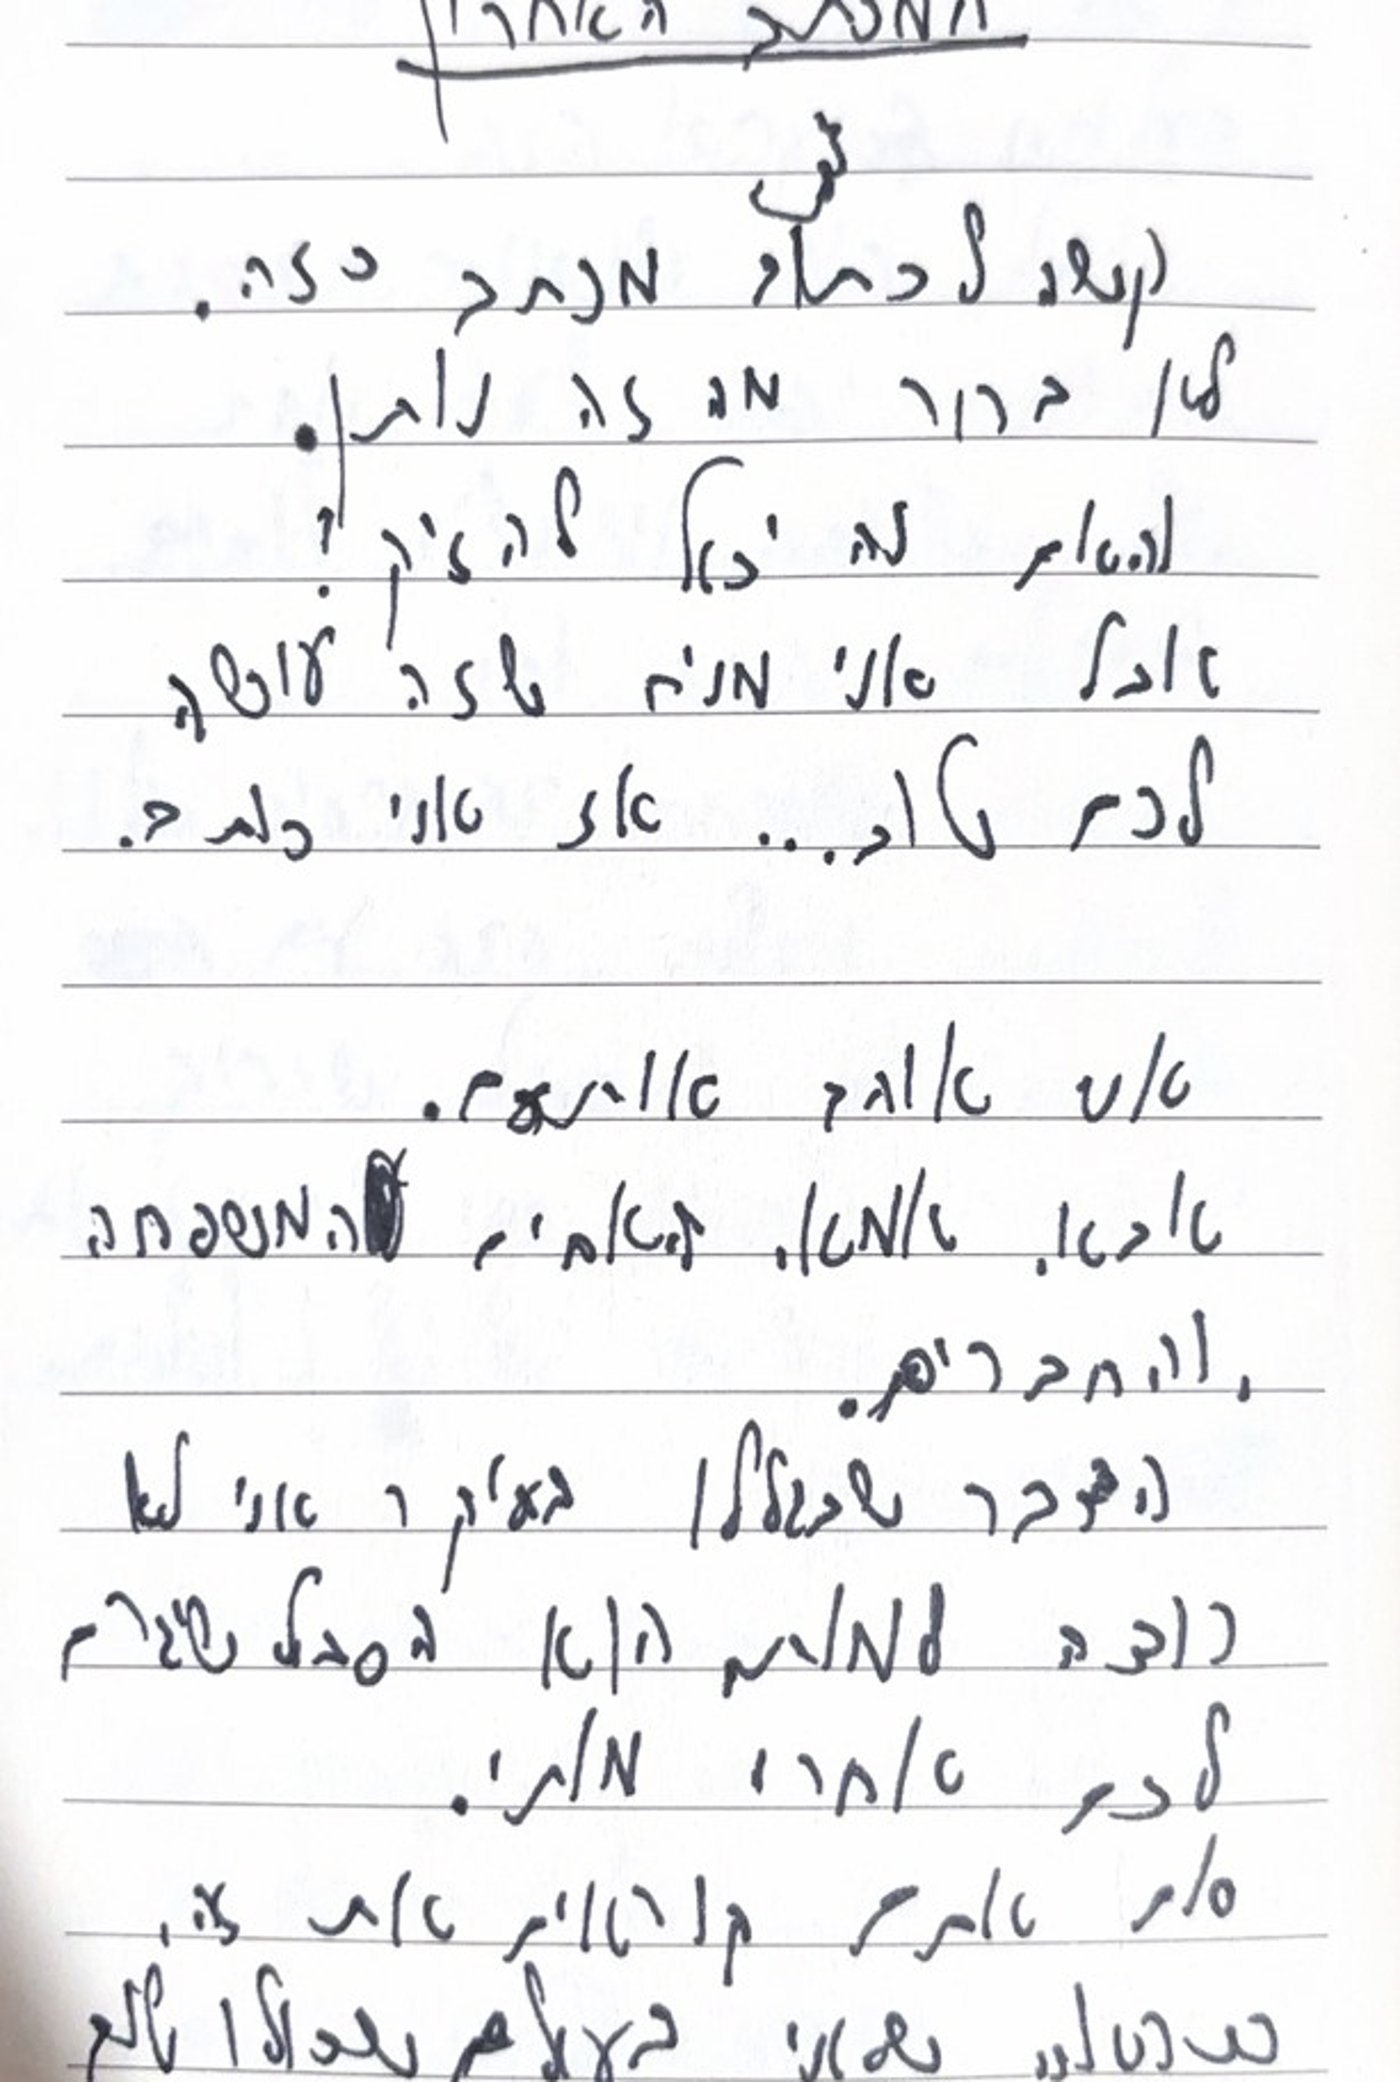 המכתב האחרון
קשה לכתוב מכתב כזה.
לא ברור מה זה נותן.
והאם זה יכול להזיק?
אבל אני מניח שזה עושה
לכם טוב... אז אני כותב.
אני אוהב אותכם.
אבא, אמא, האחים המשפחה
והחברים.
הדבר שבגללו בעיקר אני לא
רוצה למות הוא הסבל שיגרם
לכם אחרי מותי.
אם אתם קוראים את זה,
שאני בעולם שכולו טוב